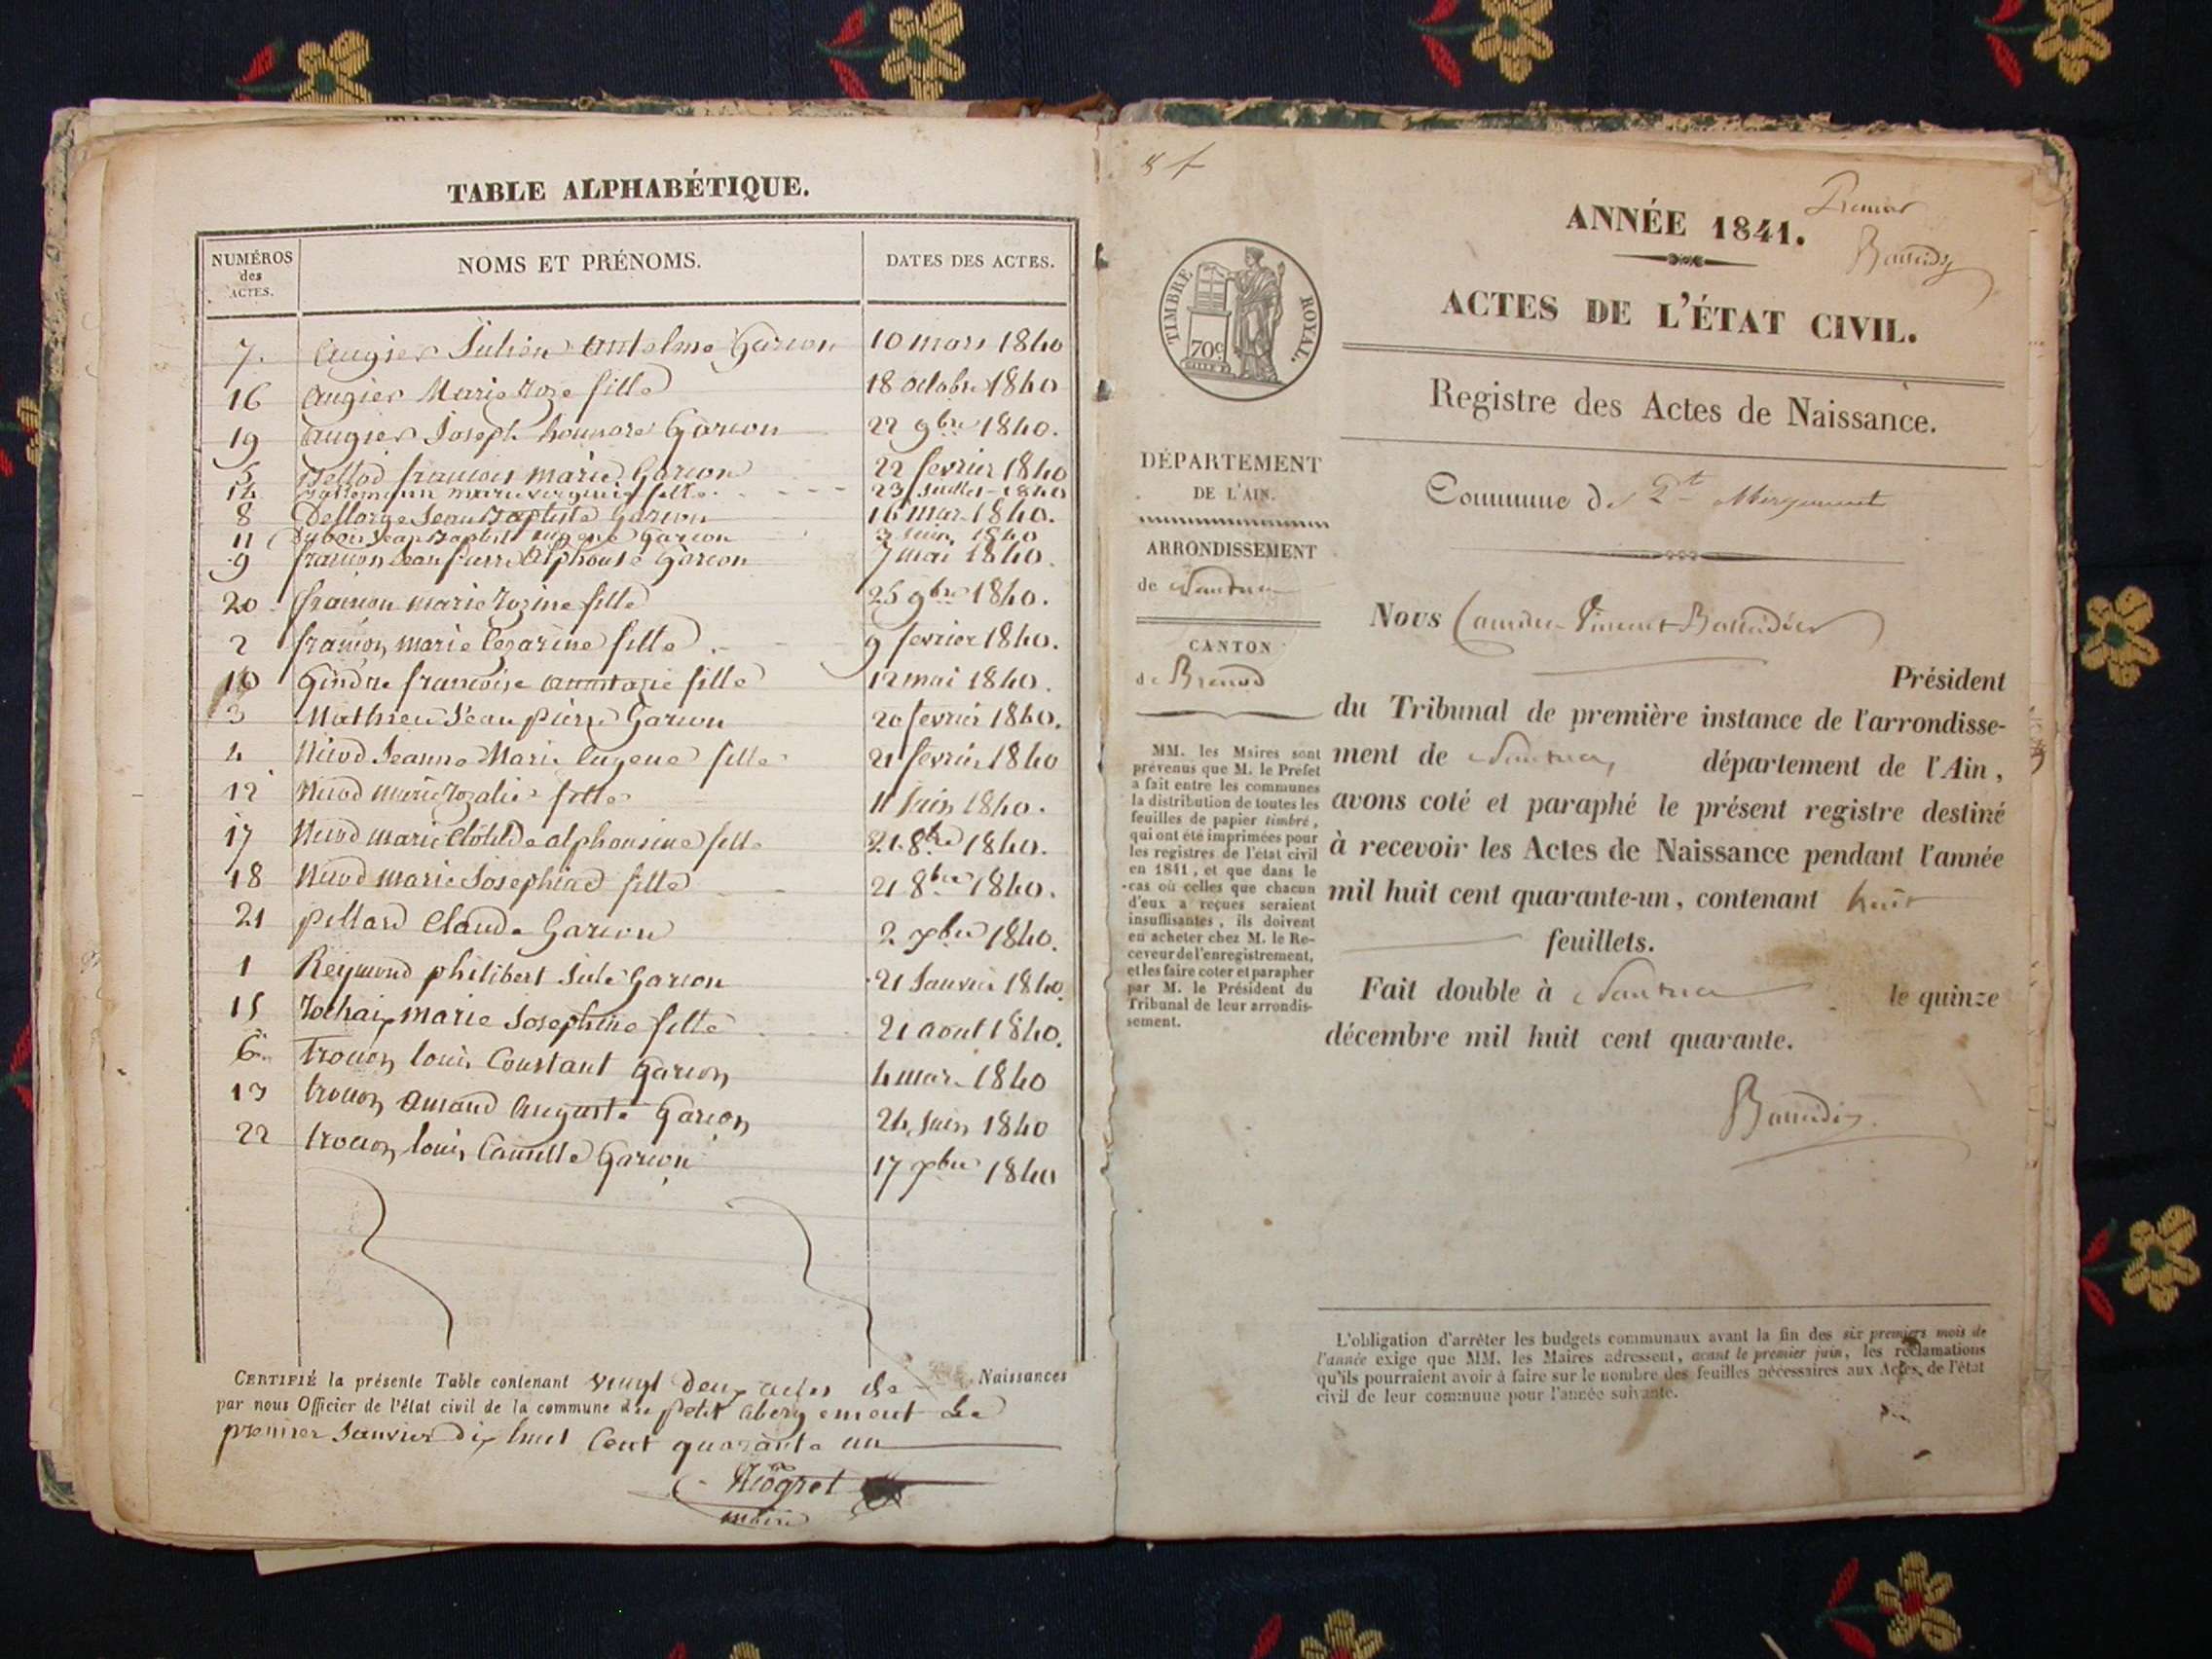 TABLE ALPHABÉTIQUE.
NUMÉROS des ACTES.
NOMS ET PRÉNOMS.
DATES DES ACTES.
7. augier Julien antelme Garcon 10 mars 1840
16 augier Marie roze fille 18 octobre 1840
19 augier Joseph honnore Garcon 22 9bre 1840.
5 Bellod francois marie Garcon 22 fevrier 1840
14 marie virginie fille 23 Juillet 1840
8 Deslorge Jean Baptiste Garcon 16 mars 1840.
11 Jean Baptiste Garcon 3 Juin 1840
9 francon Jean pierre alphonse Garcon 7 mai 1840.
20 francon marie rozine fille 25 9bre 1840.
2 francon marie cezarine fille 9 fevrier 1840.
10 Gindre francoise annstazie fille 12 mai 1840.
3 Mathieu Jean pierre Garcon 20 fevrier 1840.
4 Niiod Jeanne Marie Eugene fille 21 fevrier 1840
12 Niiod marie rozalie fille 11 Juin 1840.
17 Niiod marie Clotilde alphonsine fille 21 8bre 1840.
18 Niiod marie Josephine fille 21 8bre 1840.
21 pillard Claude Garcon 2 xbre 1840.
1 Reymond philibert Jule Garcon 21 Janvier 1840.
15 rochaix marie Josephine fille 21 aout 1840.
6 trocon louis Constant Garcon 4 mars 1840
13 trocon amand auguste Garcon 24 Juin 1840
22 trocon louis Camille Garcon 17 xbre 1840
CERTIFIÉ la présente Table contenant vingt deux actes de Naissances
par nous Officier de l'état civil de la commune du petit abergement Le
premier Janvier dix huit Cent quarante un
Niogret
maire
8 f
ANNÉE 1841.
Premier
Baudier
ACTES DE L'ÉTAT CIVIL.
TIMBRE ROYAL.
70c
Registre des Actes de Naissance.
DÉPARTEMENT
DE L'AIN.
ARRONDISSEMENT
de Nantua
CANTON
de Brenod
MM. les Maires sont
prévenus que M. le Préfet
a fait entre les communes
la distribution de toutes les
feuilles de papier timbré,
qui ont été imprimées pour
les registres de l'état civil
en 1841, et que dans le
cas où celles que chacun
d'eux a reçues seraient
insuffisantes, ils doivent
en acheter chez M. le Re-
ceveur de l'enregistrement,
et les faire coter et parapher
par M. le Président du
Tribunal de leur arrondis-
sement.
Commune de Pt Abergement
Nous Vincent
Président
du Tribunal de première instance de l'arrondisse-
ment de Nantua, département de l'Ain,
avons coté et paraphé le présent registre destiné
à recevoir les Actes de Naissance pendant l'année
mil huit cent quarante-un, contenant huit
feuillets.
Fait double à Nantua le quinze
décembre mil huit cent quarante.
L'obligation d'arrêter les budgets communaux avant la fin des six premiers mois de
l'année exige que MM. les Maires adressent, avant le premier juin, les réclamations
qu'ils pourraient avoir à faire sur le nombre des feuilles nécessaires aux Actes de l'état
civil de leur commune pour l'année suivante.